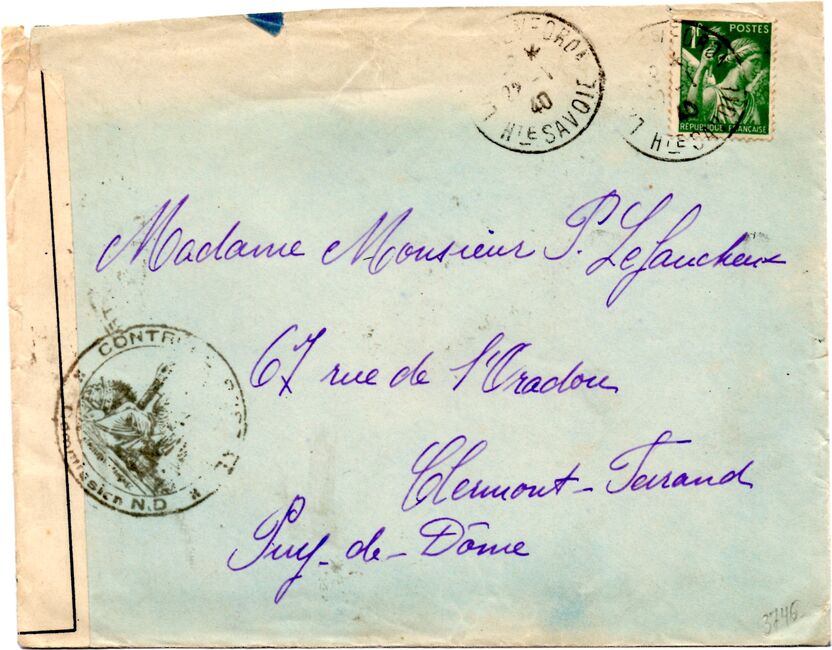 22 - 1
40
HTE SAVOIE
1F
POSTES
RÉPUBLIQUE FRANÇAISE
HTE SAVOIE
Madame Monsieur P. Lefaucheux
67 rue de l'Oradou
Clermont-Ferrand
Puy-de-Dôme
CONTR
Commission N.D
3746